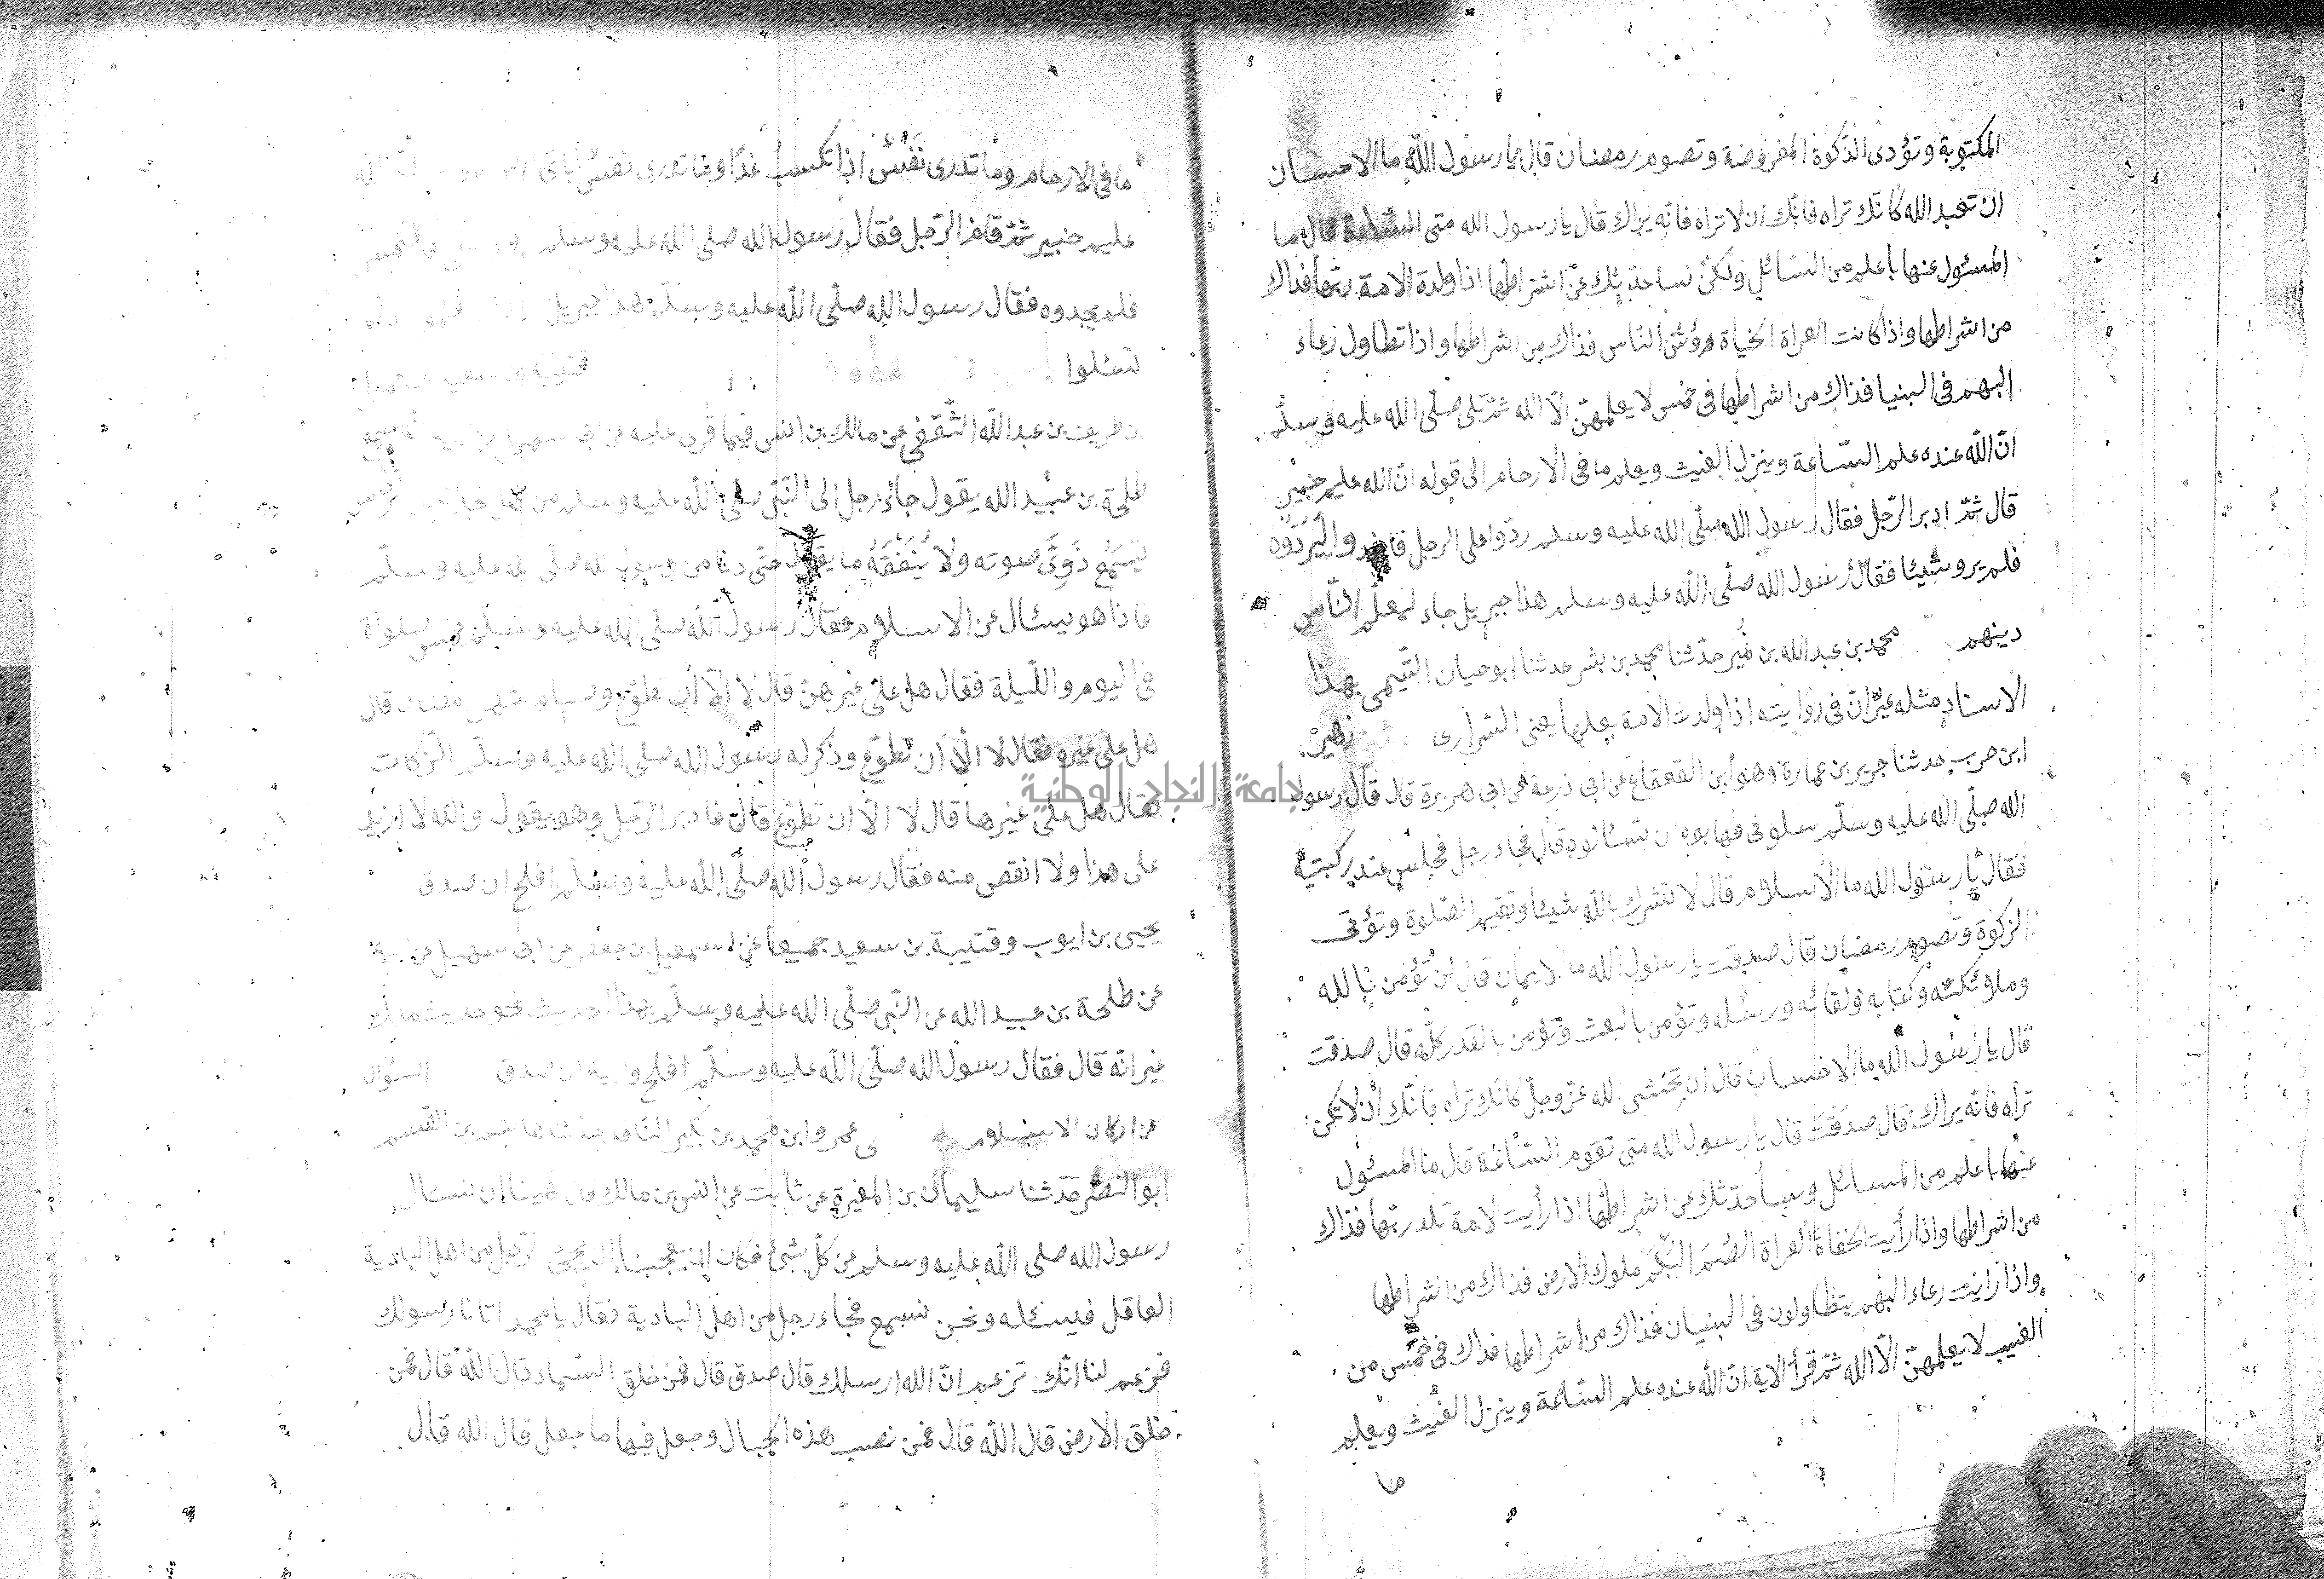 المكتوبة وتؤدى الزكوة المفروضة وتصوم رمضان قال يا رسول الله ما الاحسان
ان تعبد الله كانّك تراه فانّك ان لا تراه فانّه يراك قال يا رسول الله متى السّاعة قال ما
المسئول عنها باعلم من السّائل ولكن ساحدّثك عن اشراطها اذا ولدة الامة ربّها فذاك
من اشراطها واذا كانت العراة الحفاة رؤس النّاس فذاك من اشراطها واذا تطاول رعاء
البهم فى البنيا فذاك من اشراطها فى خمس لا يعلمهنّ الّا الله ثمّ تلى صلّى الله عليه وسلّم
انّ الله عنده علم السّاعة وينزل الغيث ويعلم ما فى الارحام الى قوله انّ الله عليم خبير
قال ثمّ ادبر الرّجل فقال رسول الله صلّى الله عليه وسلم ردّوا على الرجل ليردّوه
فلم يروا شيئا فقال رسول الله صلّى الله عليه وسلم هذا جبريل جاء ليعلّم النّاس
دينهم محمد بن عبد الله بن نمير حدّثنا محمد بن بشر حدثنا ابو حيان التّيمى بهذا
الاسناد مثله غير انّ فى روايته اذا ولدت الامة بعلها يعنى السّرارى زهير
ابن حرب حدثنا جرير بن عمارة وهو ابن القعقاع عن ابى زرعة عن ابى هريرة قال قال رسول
الله صلّى الله عليه وسلّم سلونى فهابوه ان تسئالوه قال فجاء رجل فجلس عند ركبتيه
فقال يا رسول الله ما الاسلام قال لا تشرك بالله شيئا وتقيم الصّلوة وتؤتى
الزكوة وتصوم رمضان قال صدقت يا رسول الله ما الايمان قال ان تؤمن بالله
وملائكته وكتابه ولقائه ورسله وتؤمن بالبعث وتؤمن بالقدر كلّه قال صدقت
قال يا رسول الله ما الاحسان قال ان تخشى الله عزّ وجلّ كانّك تراه فانّك ان لا تكن
تراه فانّه يراك قال صدقت قال يا رسول الله متى تقوم السّاعة قال ما المسئول
عنها باعلم من المسائل وساحدّثك عن اشراطها اذا رأيت الامة تلد ربّها فذاك
من اشراطها واذا رأيت الحفاة العراة الصّم البكم ملوك الارض فذاك من اشراطها
واذا رايت رعاء البهم يتطاولون فى البنيان فذاك من اشراطها فذاك فى خمس من
الغيب لا يعلمهنّ الّا الله ثمّ قرأ الاية انّ الله عنده علم السّاعة وينزل الغيث ويعلم
ما
ما فى الارحام وما تدرى نفس اذا تكسب غدًا وما تدرى نفس باىّ
عليم خبير ثمّ قام الرّجل فقال رسول الله صلى الله عليه وسلم
فلم يجدوه فقال رسول الله صلّى الله عليه وسلّم هذا جبريل
تسئلوا قتيبة بن سعيد بن جميل
بن طريف بن عبد الله الثّقفى عن مالك بن انس فيما قرى عليه عن ابى سهيل عن سمع
طلحة بن عبيد الله يقول جاء رجل الى النّبى صلى الله عليه وسلم من اهل نجد ثائر الرّأس
نسمع دوىّ صوته ولا نفقه ما يقول حتّى دنا من رسول الله صلّى الله عليه وسلّم
فاذا هو يسئال عن الاسلام فقال رسول الله صلّى الله عليه وسلّم خمس صلواة
فى اليوم واللّيلة فقال هل علىّ غيرهنّ قال لا الّا ان تطوّع وصيام شهر رمضان قال
هل على غيره فقال لا الّا ان تطوّع وذكر له رسول الله صلى الله عليه وسلّم الزّكات
فقال هل علىّ غيرها قال لا الّا ان تطوّع قال فادبر الرّجل وهو يقول والله لا ازيد
على هذا ولا انقص منه فقال رسول الله صلّى الله عليه وسلّم افلح ان صدق
يحيى بن ايوب وقتيبة بن سعيد جميعا عن اسمعيل بن جعفر عن ابى سهيل عن ابيه
عن طلحة بن عبيد الله عن النّبى صلّى الله عليه وسلّم بهذا الحديث نحو حديث مالك
غير انّه قال فقال رسول الله صلّى الله عليه وسلّم افلح وابيه ان صدق السؤال
عن اركان الاسلام عمرو ابن محمد بن بكير النّاقد حدثنا هاشم بن القسم
ابو النضر حدثنا سليمان بن المغيرة عن ثابت عن انس بن مالك قال نهينا ان نسئال
رسول الله صلى الله عليه وسلم عن كلّ شىئ فكان ان يعجبنا ان يجئ الرّجل من اهل البادية
العاقل فيسئله ونحن نسمع فجاء رجل من اهل البادية فقال يا محمد اتانا رسولك
فزعم لنا انّك تزعم انّ الله ارسلك قال صدق قال فمن خلق السّماء قال الله قال فمن
خلق الارض قال الله قال فمن نصب هذه الجبال وجعل فيها ما جعل قال الله قال
جامعة النجاح الوطنية